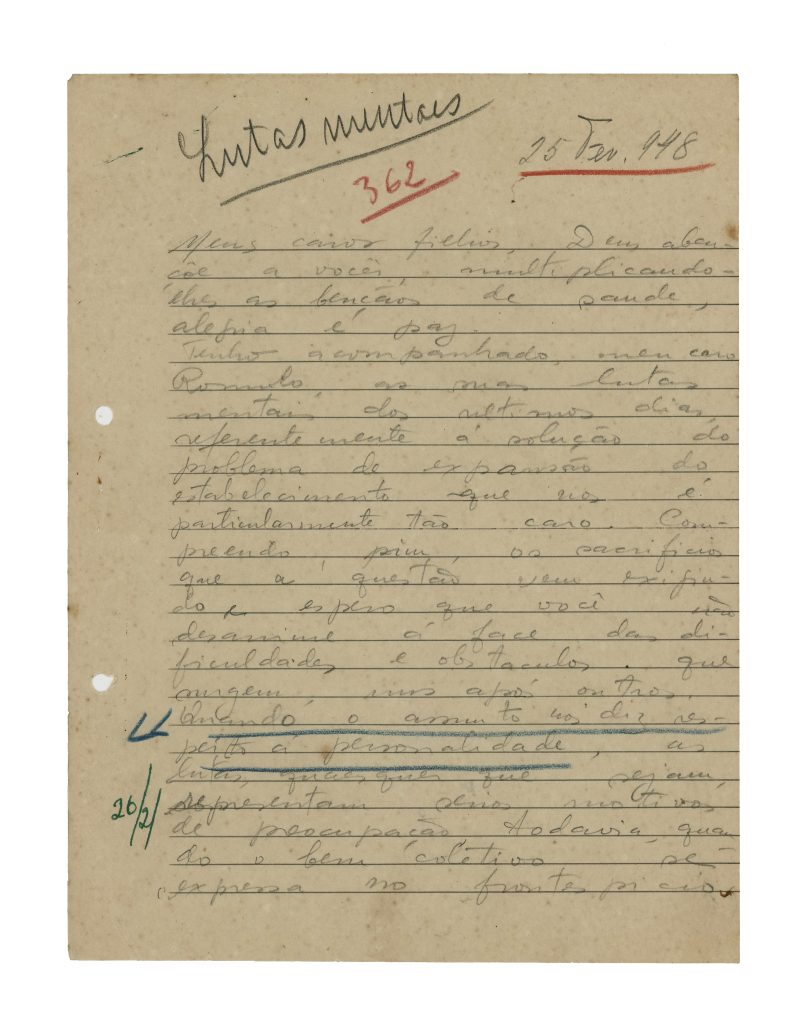 Lutas mentaes
25 Fev. 948
362
Meus caros filhos, Deus aben-
çôe a vocês, multiplicando-
lhes as bençãos de saude,
alegria e paz.
Tenho acompanhado, meu caro
Romulo, as suas lutas
mentais dos ultimos dias,
referentemente á solução do
problema de expansão do
estabelecimento que nos é
particularmente tão caro. Com-
preendo, sim, os sacrificios
que a questão vem exigin-
do e espero que você não
desanime á face das di-
ficuldades e obstaculos que
surgem, uns após outros.
Quando o assunto nos diz res-
peito á personalidade, as
lutas, quaesquer que sejam,
representam serios motivos
de preocupação, todavia, quan
do o bem coletivo se
expressa no frontespicio
26/2/